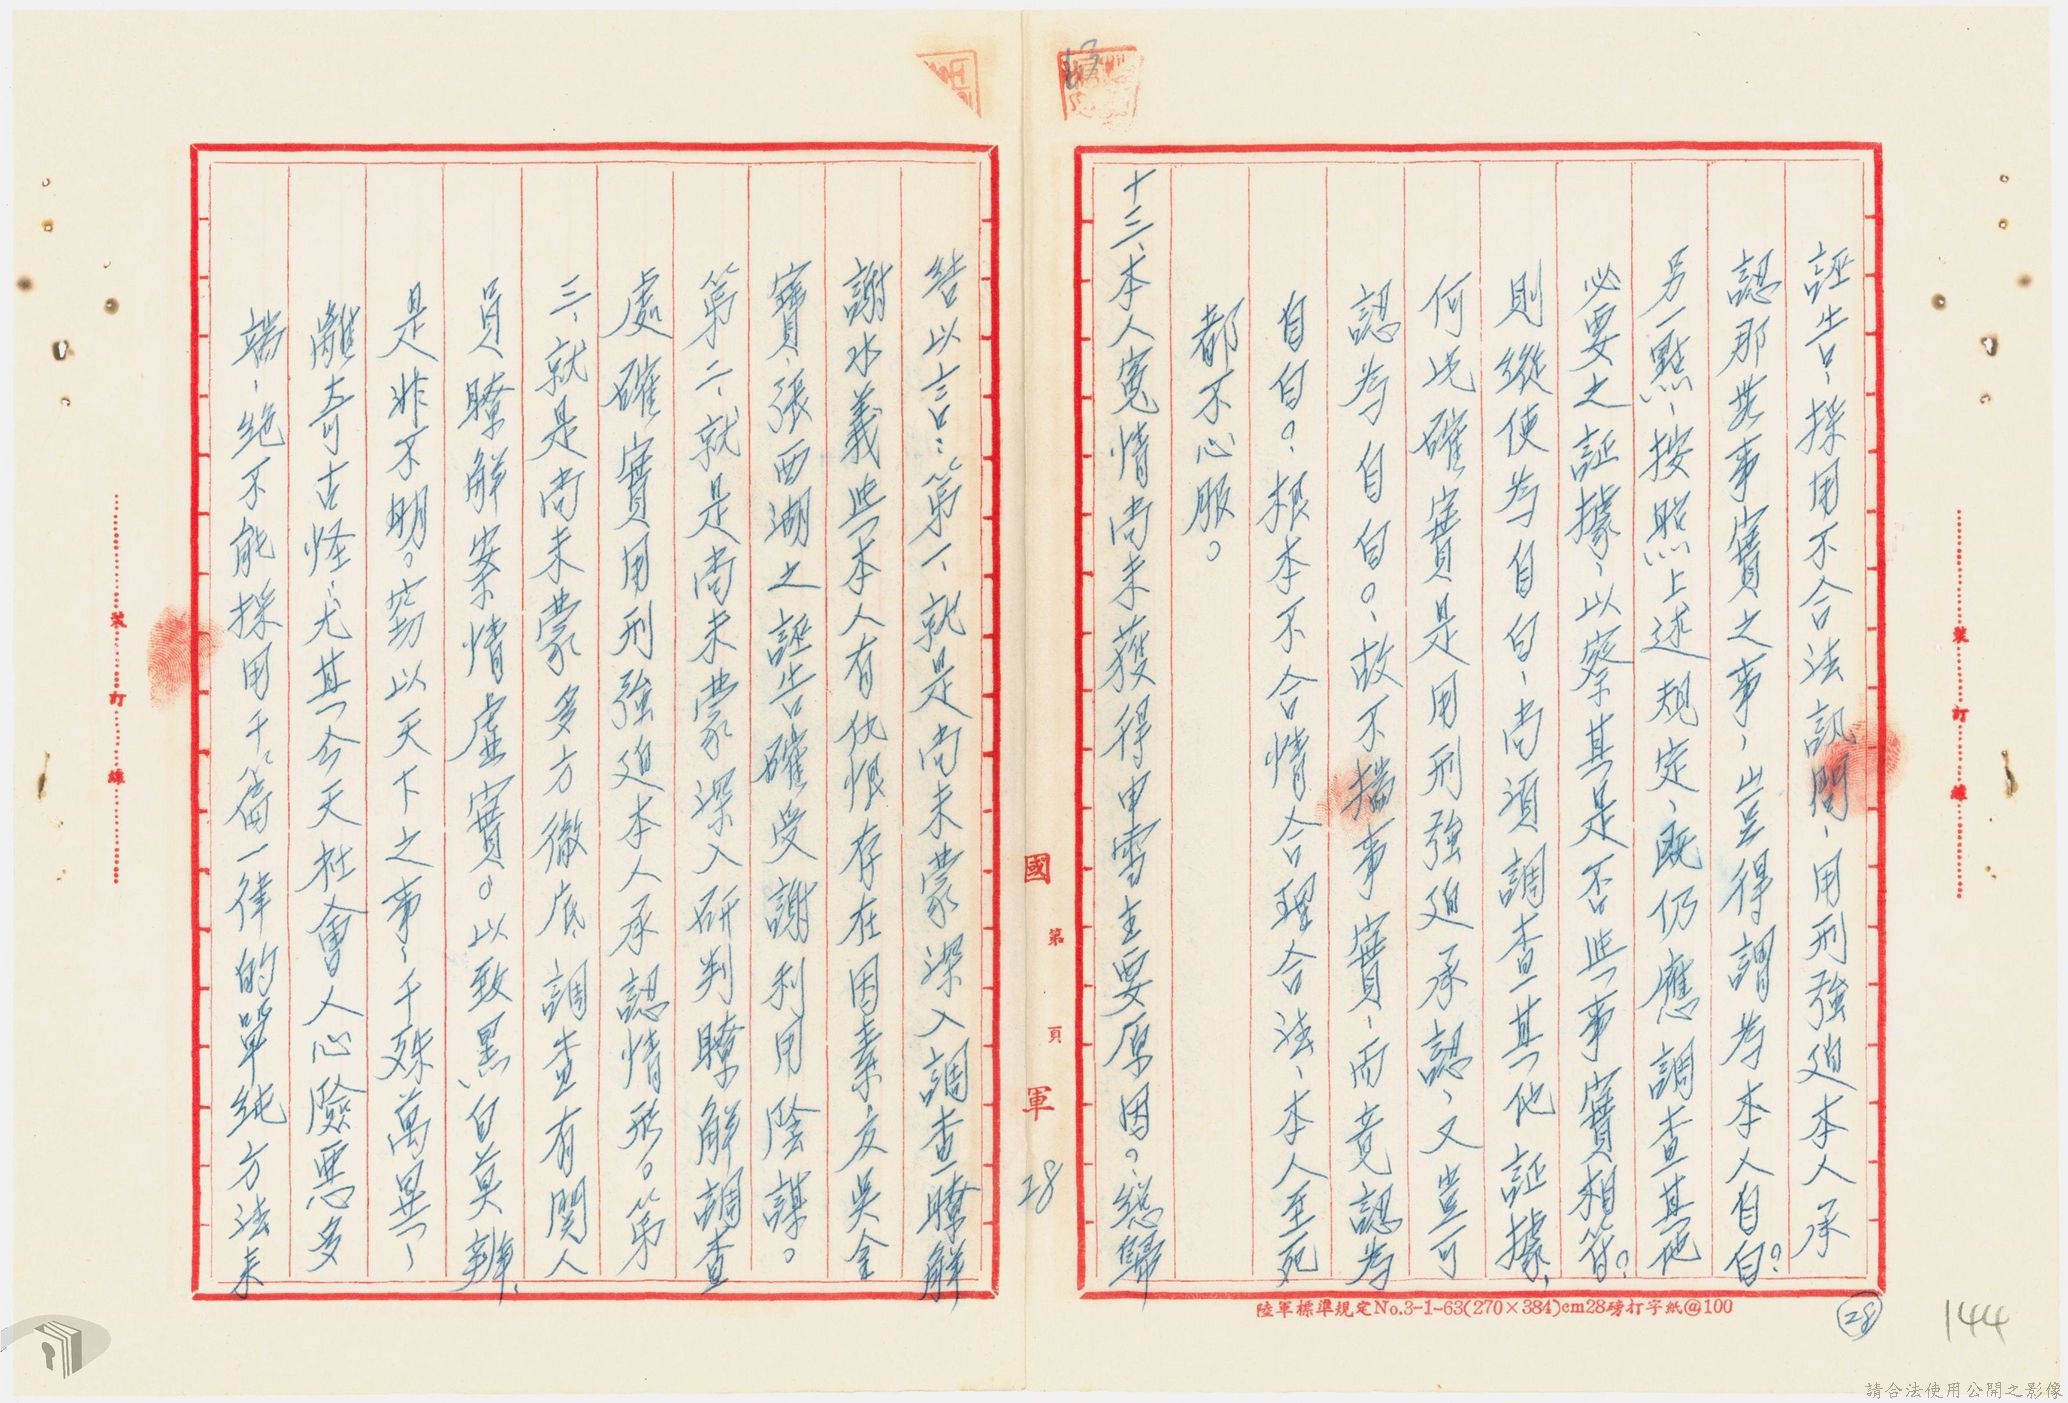 誣告、採用不合法訊問、用刑強迫本人承
認那些事實之事、豈得謂為本人自白？
另一點、按照上述規定、既仍應調查其他
必要之証據、以察其是否與事實相符？
則縱使為自白、尚須調查其他証據、
何况確實是用刑強迫承認、又豈可
認為自白。故不揣事實、而竟認為
自白？根本不合情合理合法、本人至死
都不心服。
十三、本人冤情尚未獲得申雪主要原因。總歸
結以言：第一、就是尚未蒙深入調查瞭解
謝水義與本人有仇恨存在因素、友吳金
寶、張西湖之誣告確受謝利用陰謀。
第二、就是尚未蒙深入研判瞭解調查
處確實用刑強迫本人承認情形。第
三、就是尚未蒙多方徹底調查有関人
員瞭解案情虛實。以致黑白莫辨、
是非不明。茲以天下之事、千殊萬異、
離奇古怪、尤其今天社會人心險惡多
端、絕不能採用千篇一律的單純方法來
國 軍
第 頁
28
裝 訂 線
裝 訂 線
陸軍標準規定No.3-1-63(270×384)cm28磅打字紙@100
28
144
請合法使用公開之影像